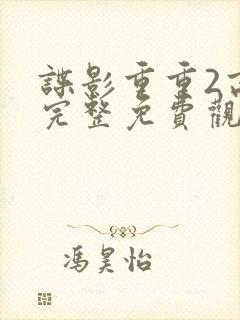 諜影重重2高
完整免費觀
馮昊怡